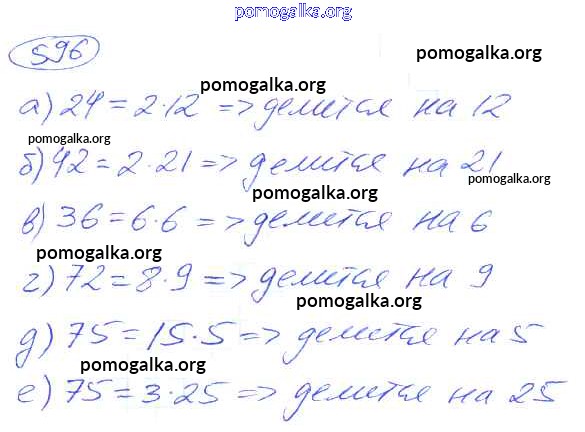 pomogalka.org
596
pomogalka.org
pomogalka.org
а) 24 = 2·12 => делится на 12
pomogalka.org
б) 42 = 2·21 => делится на 21
pomogalka.org
pomogalka.org
в) 36 = 6·6 => делится на 6
pomogalka.org
г) 72 = 8·9 => делится на 9
pomogalka.org
д) 75 = 15·5 => делится на 5
pomogalka.org
е) 75 = 3·25 => делится на 25